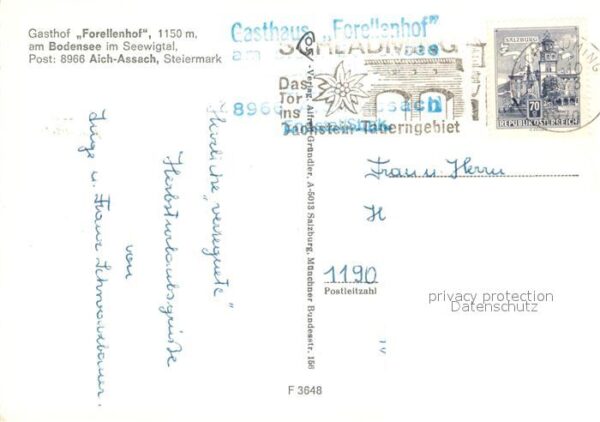 Gasthof „Forellenhof", 1150 m,
am Bodensee im Seewigtal,
Post: 8966 Aich-Assach, Steiermark
Gasthaus „Forellenhof"
am
SCHLADMING
Das
Tor
ins
Dachstein-Tauerngebiet
8966
SALZBURG
70
REPUBLIK ÖSTERREICH
Herzliche „verregnete"
Herbsturlaubsgrüße
von
Inge u. Franz
Verlag, Alfred Gründler, A-5013 Salzburg, Münchner Bundesstr. 156
Frau u. Herrn
H
1190
Postleitzahl
privacy protection
Datenschutz
F 3648